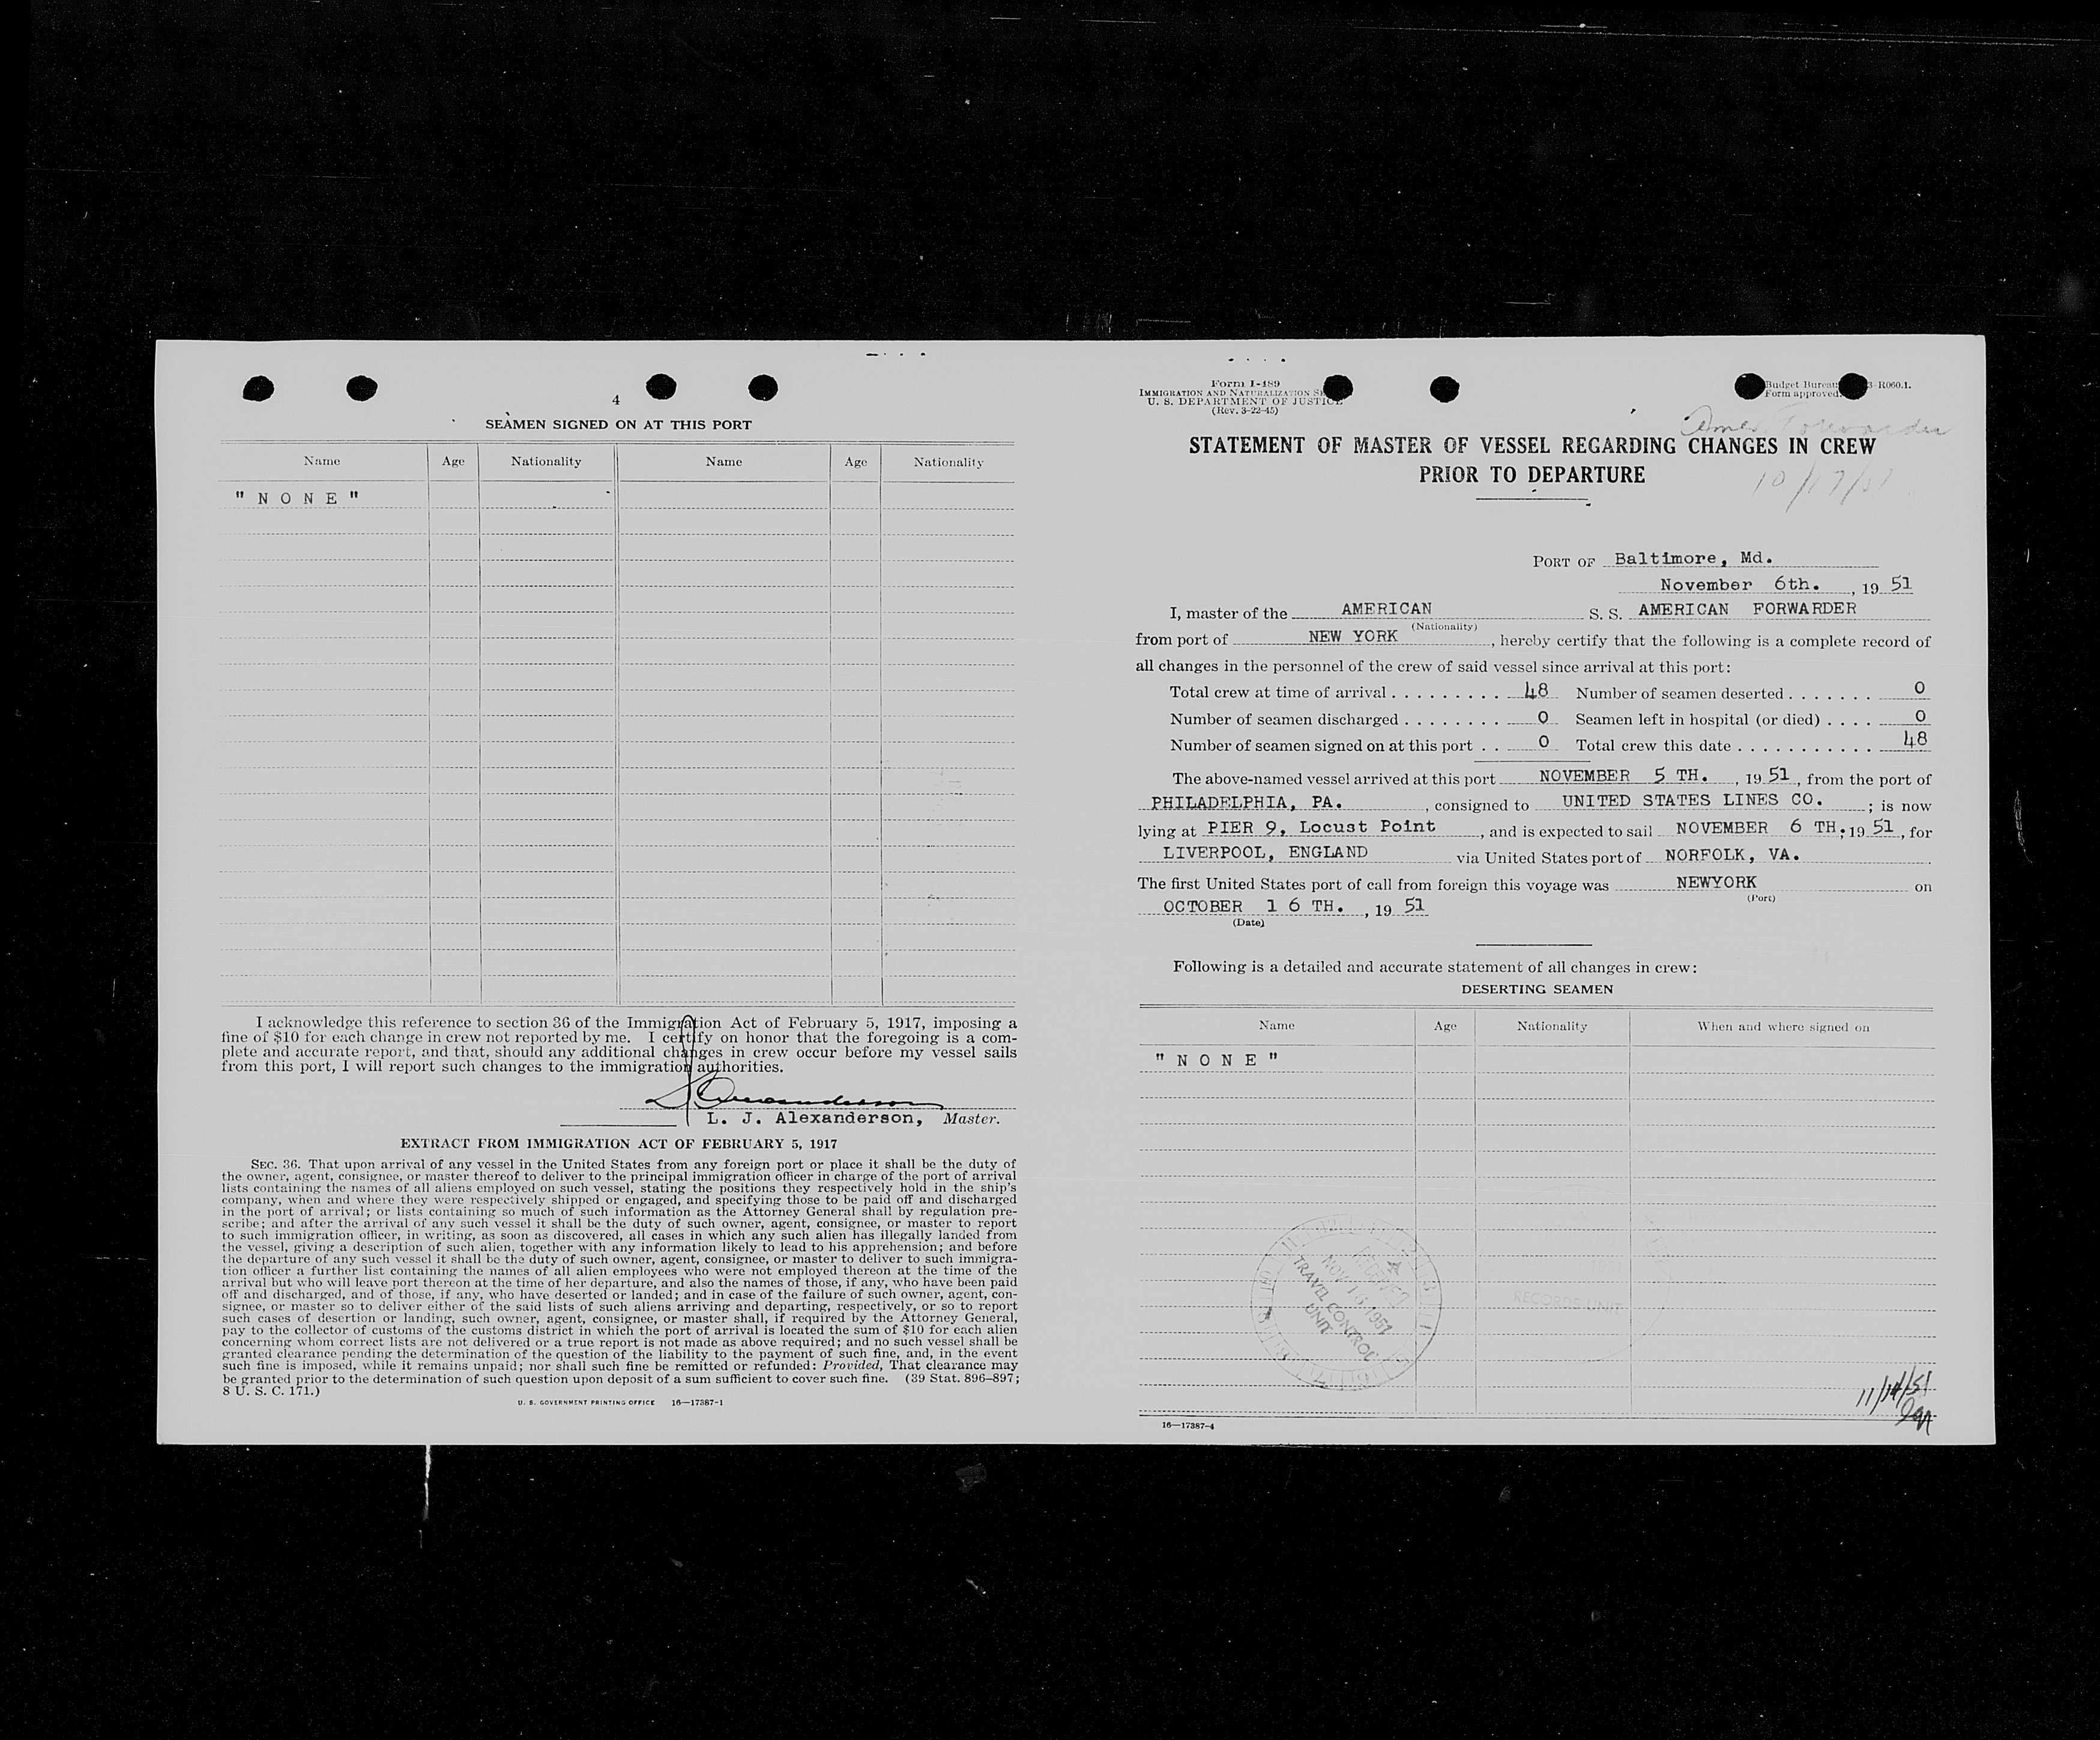 4
SEAMEN SIGNED ON AT THIS PORT
Name Age Nationality Name Age Nationality
" N O N E "
I acknowledge this reference to section 36 of the Immigration Act of February 5, 1917, imposing a
fine of $10 for each change in crew not reported by me. I certify on honor that the foregoing is a com-
plete and accurate report, and that, should any additional changes in crew occur before my vessel sails
from this port, I will report such changes to the immigration authorities.
L. J. Alexanderson, Master.
EXTRACT FROM IMMIGRATION ACT OF FEBRUARY 5, 1917
SEC. 36. That upon arrival of any vessel in the United States from any foreign port or place it shall be the duty of
the owner, agent, consignee, or master thereof to deliver to the principal immigration officer in charge of the port of arrival
lists containing the names of all aliens employed on such vessel, stating the positions they respectively hold in the ship's
company, when and where they were respectively shipped or engaged, and specifying those to be paid off and discharged
in the port of arrival; or lists containing so much of such information as the Attorney General shall by regulation pre-
scribe; and after the arrival of any such vessel it shall be the duty of such owner, agent, consignee, or master to report
to such immigration officer, in writing, as soon as discovered, all cases in which any such alien has illegally landed from
the vessel, giving a description of such alien, together with any information likely to lead to his apprehension; and before
the departure of any such vessel it shall be the duty of such owner, agent, consignee, or master to deliver to such immigra-
tion officer a further list containing the names of all alien employees who were not employed thereon at the time of the
arrival but who will leave port thereon at the time of her departure, and also the names of those, if any, who have been paid
off and discharged, and of those, if any, who have deserted or landed; and in case of the failure of such owner, agent, con-
signee, or master so to deliver either of the said lists of such aliens arriving and departing, respectively, or so to report
such cases of desertion or landing, such owner, agent, consignee, or master shall, if required by the Attorney General,
pay to the collector of customs of the customs district in which the port of arrival is located the sum of $10 for each alien
concerning whom correct lists are not delivered or a true report is not made as above required; and no such vessel shall be
granted clearance pending the determination of the question of the liability to the payment of such fine, and, in the event
such fine is imposed, while it remains unpaid; nor shall such fine be remitted or refunded: Provided, That clearance may
be granted prior to the determination of such question upon deposit of a sum sufficient to cover such fine. (39 Stat. 896–897;
8 U. S. C. 171.)
U. S. GOVERNMENT PRINTING OFFICE 16—17387-1
Form I-489
IMMIGRATION AND NATURALIZATION
U. S. DEPARTMENT OF JUSTICE
(Rev. 3-22-45)
Budget Bureau R060.1.
Form approved.
Amer Forwarder
STATEMENT OF MASTER OF VESSEL REGARDING CHANGES IN CREW
PRIOR TO DEPARTURE
10/17/51
PORT OF Baltimore, Md.
November 6th. , 19 51
I, master of the AMERICAN S. S. AMERICAN FORWARDER
(Nationality)
from port of NEW YORK , hereby certify that the following is a complete record of
all changes in the personnel of the crew of said vessel since arrival at this port:
Total crew at time of arrival . . . . . . . . . 48 Number of seamen deserted . . . . . . . 0
Number of seamen discharged . . . . . . . . 0 Seamen left in hospital (or died) . . . . 0
Number of seamen signed on at this port . . 0 Total crew this date . . . . . . . . . . . 48
The above-named vessel arrived at this port NOVEMBER 5 TH. , 19 51 , from the port of
PHILADELPHIA, PA. , consigned to UNITED STATES LINES CO. ; is now
lying at PIER 9, Locust Point , and is expected to sail NOVEMBER 6 TH; 19 51 , for
LIVERPOOL, ENGLAND via United States port of NORFOLK, VA.
The first United States port of call from foreign this voyage was NEWYORK on
(Port)
OCTOBER 1 6 TH. , 19 51
(Date)
Following is a detailed and accurate statement of all changes in crew:
DESERTING SEAMEN
Name Age Nationality When and where signed on
" N O N E "
RECEIVED
NOV 16 1951
TRAVEL CONTROL
UNIT
RECORDS UNIT
11/14/51
16—17387-4